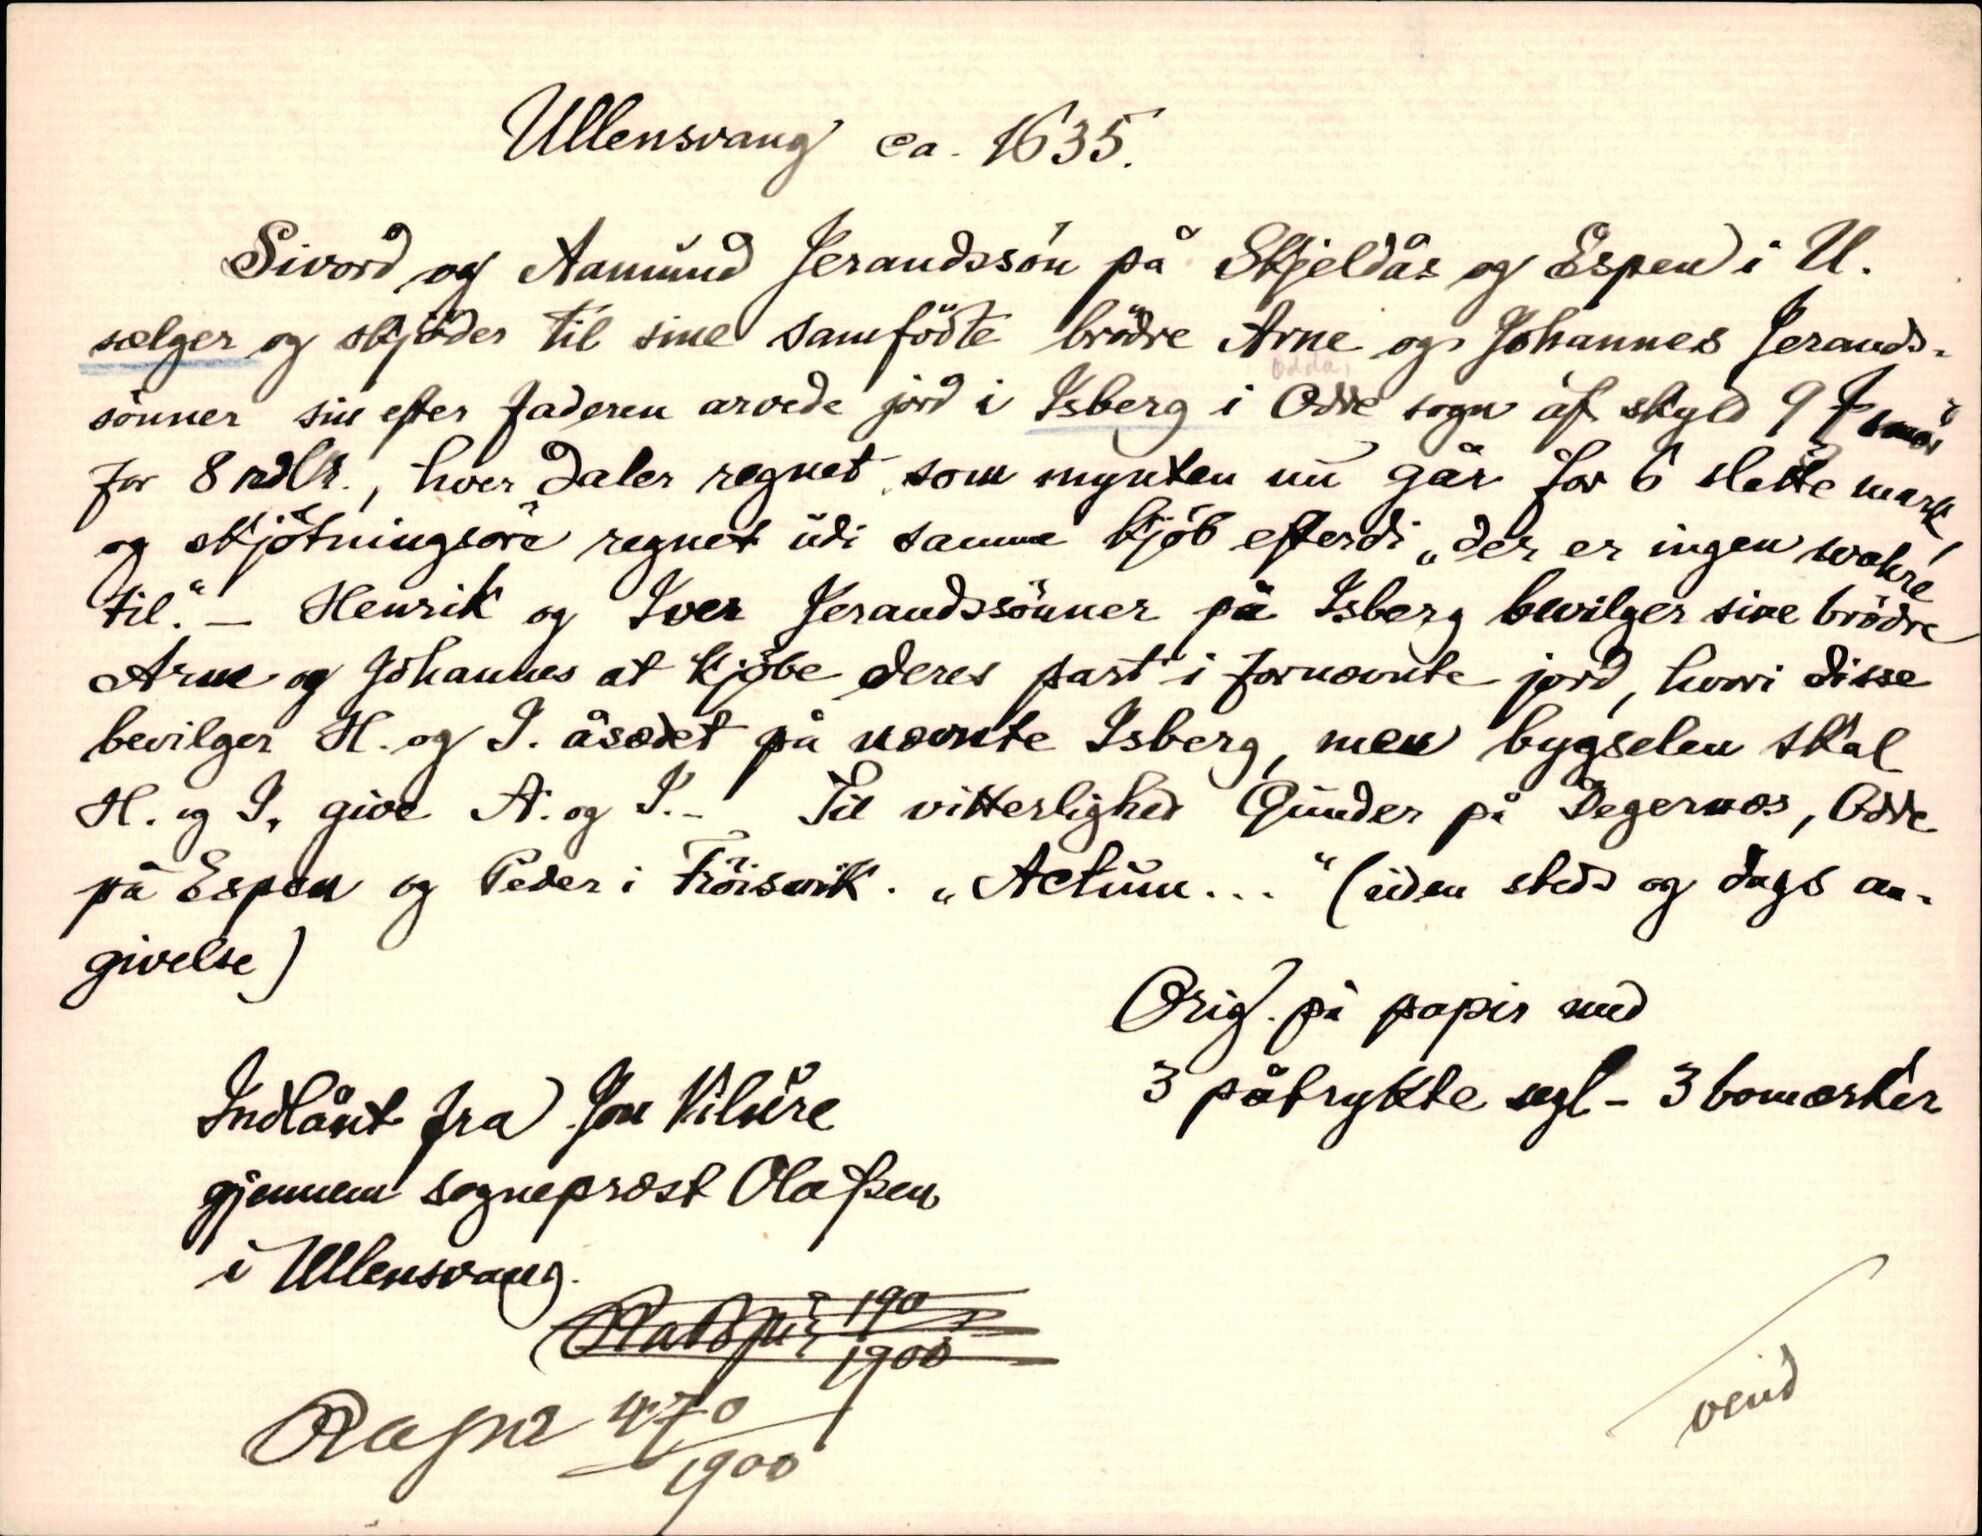 Ullensvang ca. 1635.
Sivord og Aamund Jerandssön på Skjeldås og Espen i U.
sælger og skjöder til sine samfödte brödre Arne og Johannes Jerands-
Odda,
sönner sin efter faderen arvede jord i Isberg i Odde sogn af skyld 9 smör
for 8 rdlr., hver daler regnet som mynten nu går for 6 slette mark
og skjötningsöre regnet udi samme kjöb efterdi „der er ingen wohre
til." – Henrik og Iver Jerandssönner på Isberg bevilger sine brödre
Arne og Johannes at kjöbe deres part i fornævnte jord, hvori disse
bevilger H. og I. åsædet på nævnte Isberg, men bygselen skal
H. og I. give A. og J. – Til vitterlighed Gunder på Degernæs, Odde
på Espen og Peder i Fröisvik. „Actum... " (uden steds og dags an-
givelse)
Orig. på papir med
3 påtrykte segl – 3 bomærker
Indlånt fra Jon Vilure
gjennem sogneprest Olafsen
i Ullensvang.
190
1900
470
1900
vend